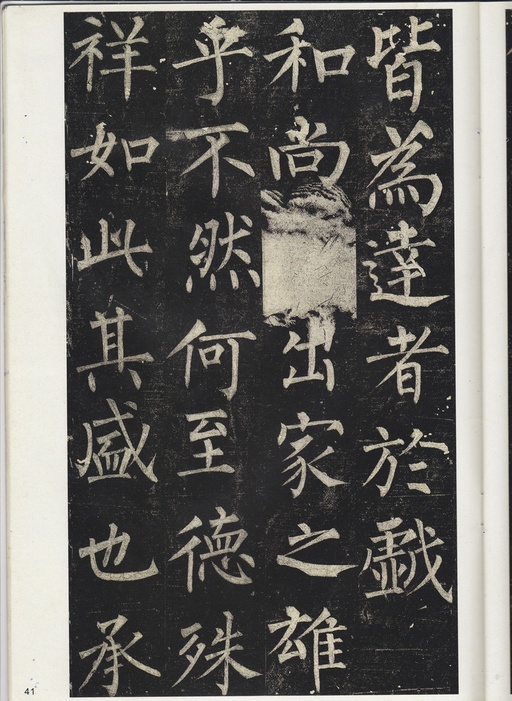 皆為達者於戲
和尚出家之雄
乎不然何至德殊
祥如此其盛也承
41